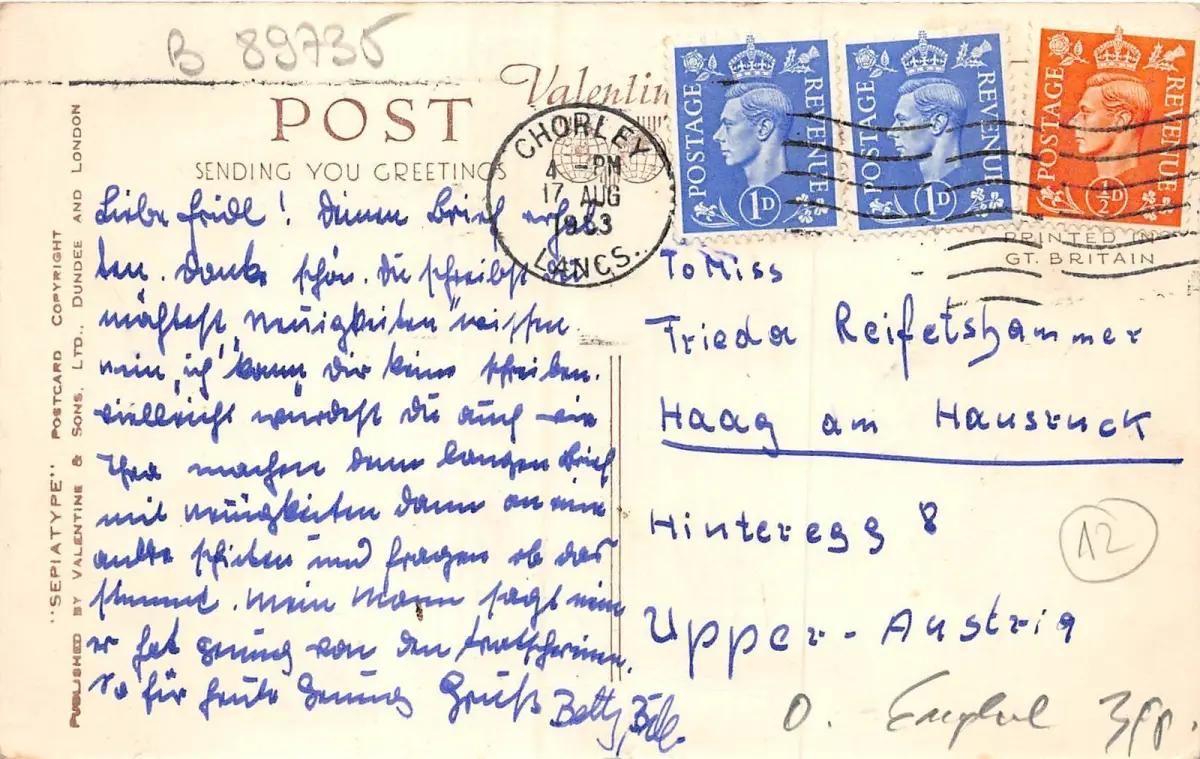 B 89735
Valentin
POST
SENDING YOU GREETINGS
CHORLEY
4 - PM
17 AUG
1953
LANCS.
POSTAGE REVENUE
1D
POSTAGE REVENUE
1D
POSTAGE REVENUE
½D
PRINTED IN
GT. BRITAIN
"SEPIATYPE" POSTCARD COPYRIGHT
PUBLISHED BY VALENTINE & SONS, LTD., DUNDEE AND LONDON
Liebe Fridl! Deinen Brief erhal
ten. Danke schön. Du schreibst Du
möchtest "Neuigkeiten" wissen.
nein, ich kann Dir keine schreiben.
vielleicht würdest Du auch wie
machen denn langen Brief
mit Neuigkeiten dann an eine
andre schicken und fragen ob das
stimmt. Mein Mann sagt nein
er hat genung von den Tratscherinnen.
So für heute genung Gruß Betty
To Miss
Frieda Reifetshammer
Haag am Hausruck
Hinteregg 8
Upper-Austria
12
O.